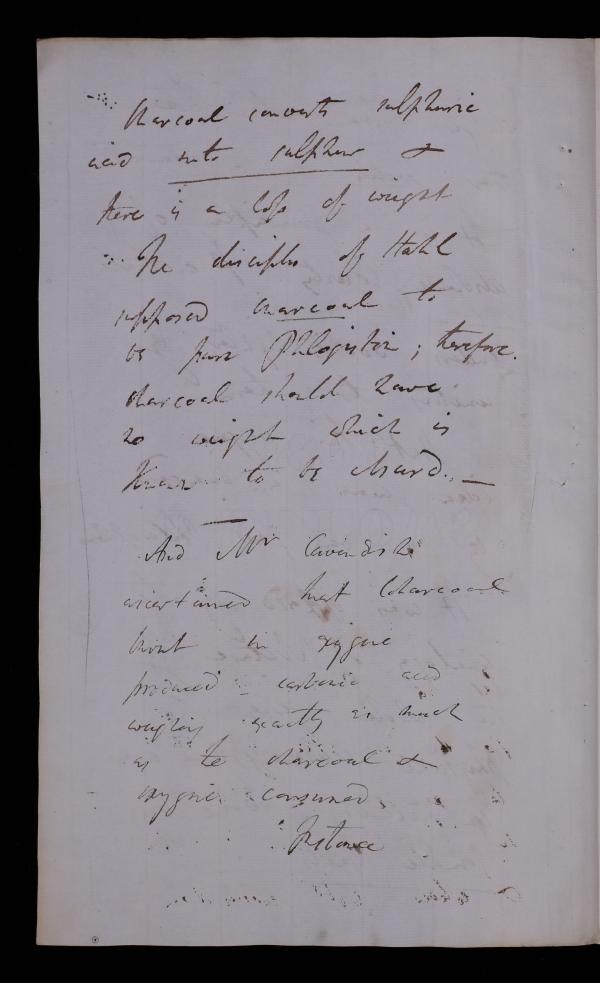 Charcoal converts sulphuric
acid into sulphur &
there is a loss of weight
The disciples of Stahl
supposed charcoal to
be pure Phlogiston; therefore
charcoal should have
no weight which is
known to be absurd. —
And Mr Cavendish
ascertained that Charcoal
burnt in oxygene
produced carbonic acid
weighing exactly as much
as the charcoal &
oxygene consumed.
Instance